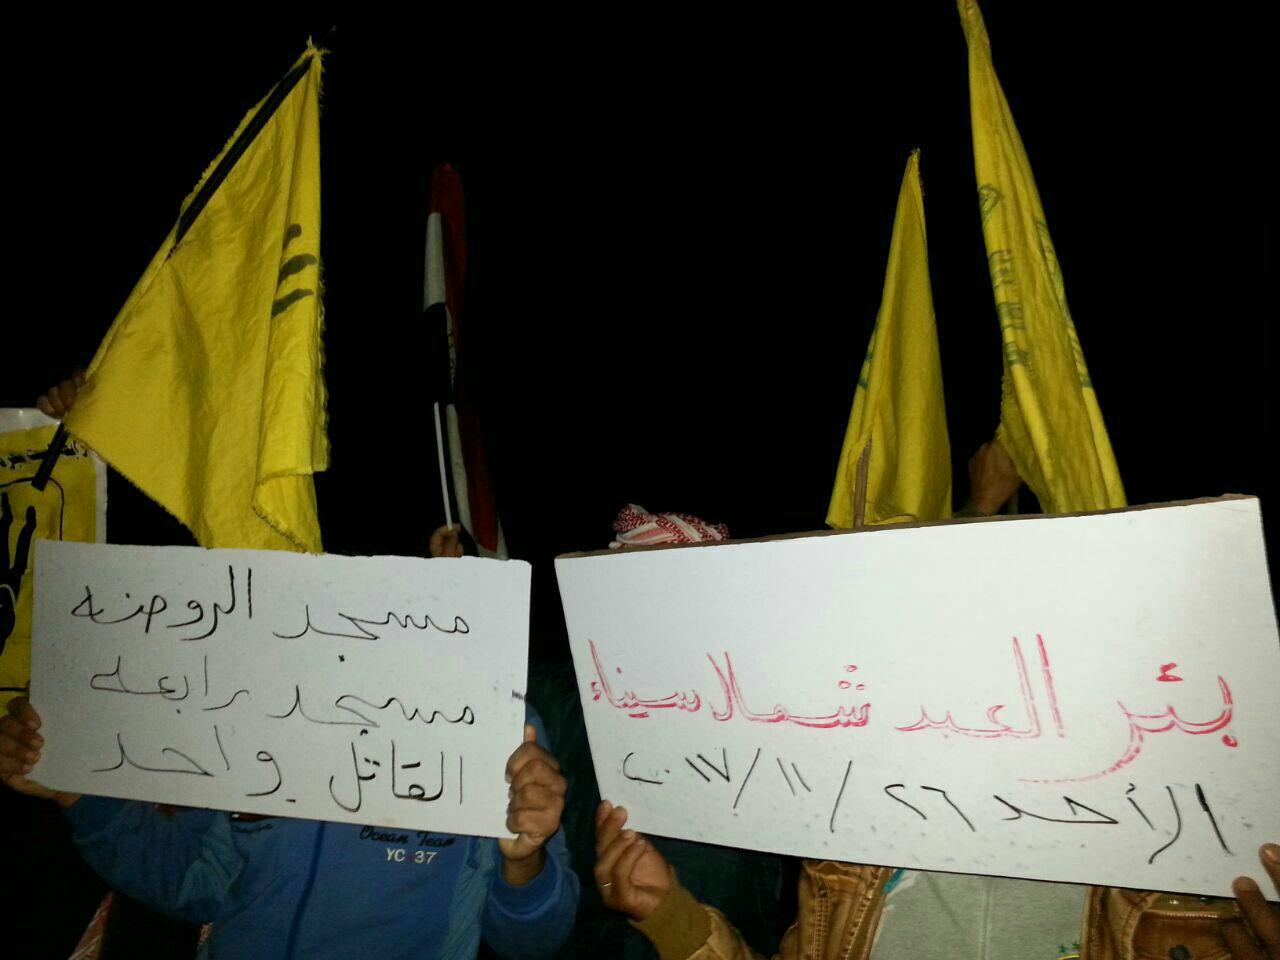 مسجد الروضه
مسجد رابعه
القاتل واحد
بئر العبد شمال سيناء
الأحد ٢٦ / ١١ / ٢٠١٧
Ocean Team
YC 37